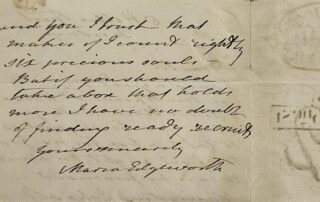 and you I trust that
makes if I count rightly
six precious souls -
But if you should
take a box that holds
more I have no doubt
of finding ready recruits
Yours sincerely
Maria Edgeworth